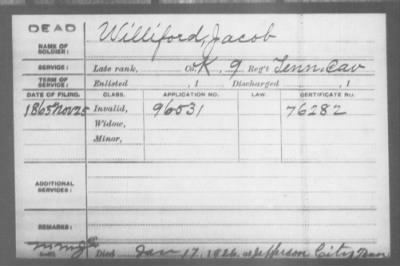 DEAD
NAME OF SOLDIER: Williford, Jacob
SERVICE: Late rank, Co. K, 9 Reg't Tenn. Cav
TERM OF SERVICE: Enlisted , 1 Discharged , 1
DATE OF FILING. CLASS. APPLICATION NO. LAW. CERTIFICATE NO.
1865 Nov 25 Invalid, 96531 76282
Widow,
Minor,
ADDITIONAL SERVICES:
REMARKS:
Died Jan 17, 1926, at Jefferson City Tenn